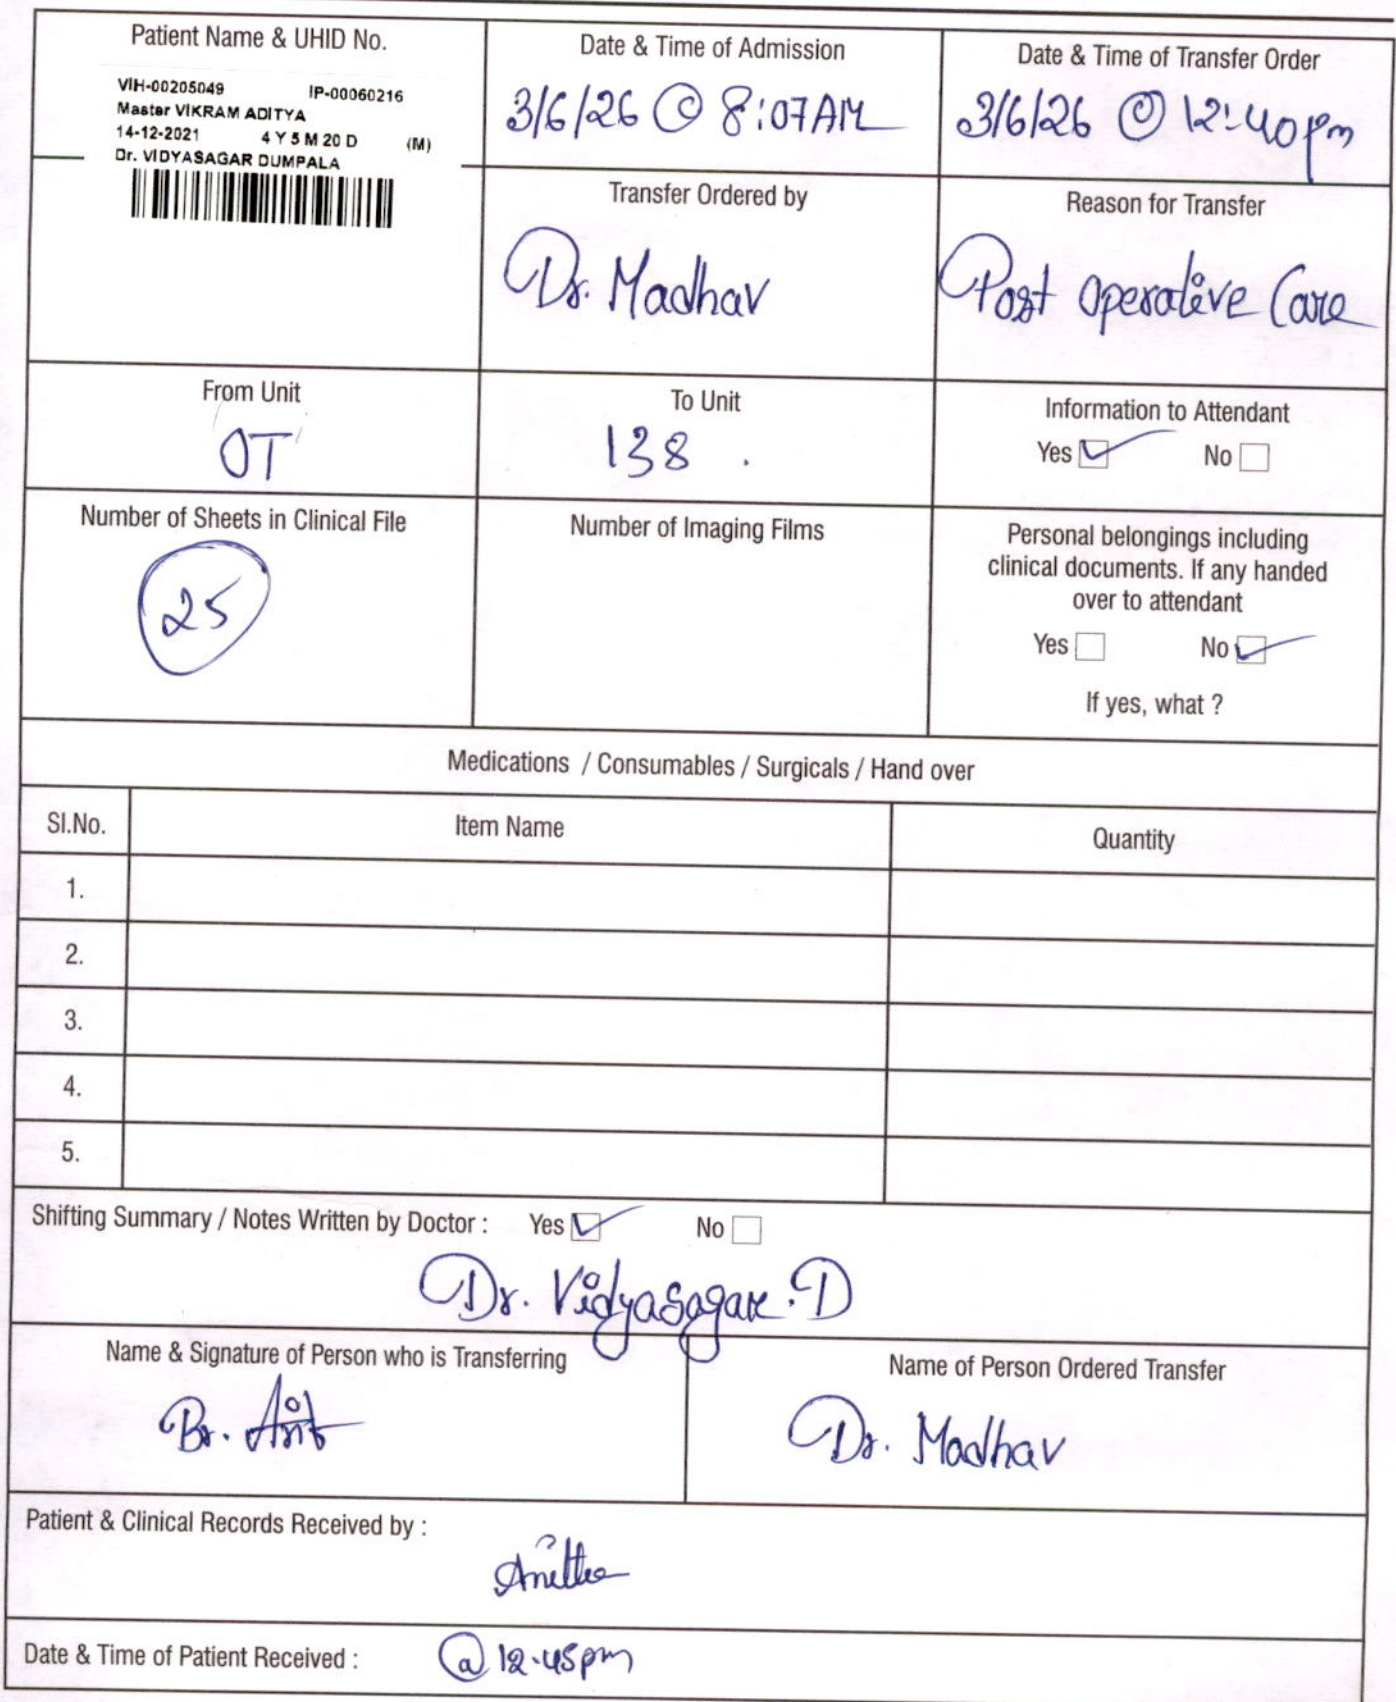 Patient Name & UHID No.
VIH-00205049 IP-00060216
Master VIKRAM ADITYA
14-12-2021 4 Y 5 M 20 D (M)
Dr. VIDYASAGAR DUMPALA
Date & Time of Admission
3/6/26 @ 8:07AM
Date & Time of Transfer Order
3/6/26 @ 12:40pm
Transfer Ordered by
Dr. Madhav
Reason for Transfer
Post operative Care
From Unit
OT
To Unit
138 .
Information to Attendant
Yes No
Number of Sheets in Clinical File
25
Number of Imaging Films
Personal belongings including
clinical documents. If any handed
over to attendant
Yes No
If yes, what ?
Medications / Consumables / Surgicals / Hand over
Sl.No. Item Name Quantity
1.
2.
3.
4.
5.
Shifting Summary / Notes Written by Doctor : Yes No
Dr. Vidyasagar. D
Name & Signature of Person who is Transferring
Br.
Name of Person Ordered Transfer
Dr. Madhav
Patient & Clinical Records Received by :
Anitha
Date & Time of Patient Received : @ 12.45pm